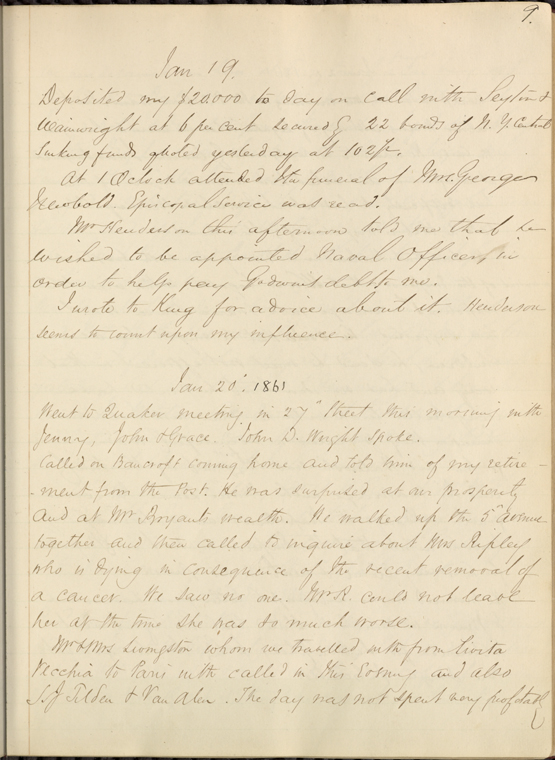 9.
Jan 19.
Deposited my $20.000 to day on call with &
Wainwright at 6 per cent secured by 22 bonds of N. Y. Central
Sinking funds quoted yesterday at 102 1/2.
At 1 OClock attended the funeral of Mrs. George
Newbold. Episcopal Service was read.
Mr Henderson this afternoon told me that he
wished to be appointed Naval Officer in
order to help pay Godwin's debt to me.
I wrote to King for advice about it. Henderson
seems to count upon my influence.
Jan 20. 1861
Went to Quaker meeting in 27th Street this morning with
Jenny, John & Grace. John D. Wright spoke.
Called on Bancroft coming home and told him of my retire-
-ment from the Post. He was surprised at our prosperity
and at Mr Bryants wealth. We walked up the 5th avenue
together and then called to inquire about Mrs Ripley
who is dying in consequence of the recent removal of
a cancer. We saw no one. Mr R. could not leave
her at the time she was so much worse.
Mr & Mrs Livingston whom we travelled with from Civita
Vecchia to Paris with called in this Evening and also
S. J Tilden & Van Alen. The day was not spent very profitably